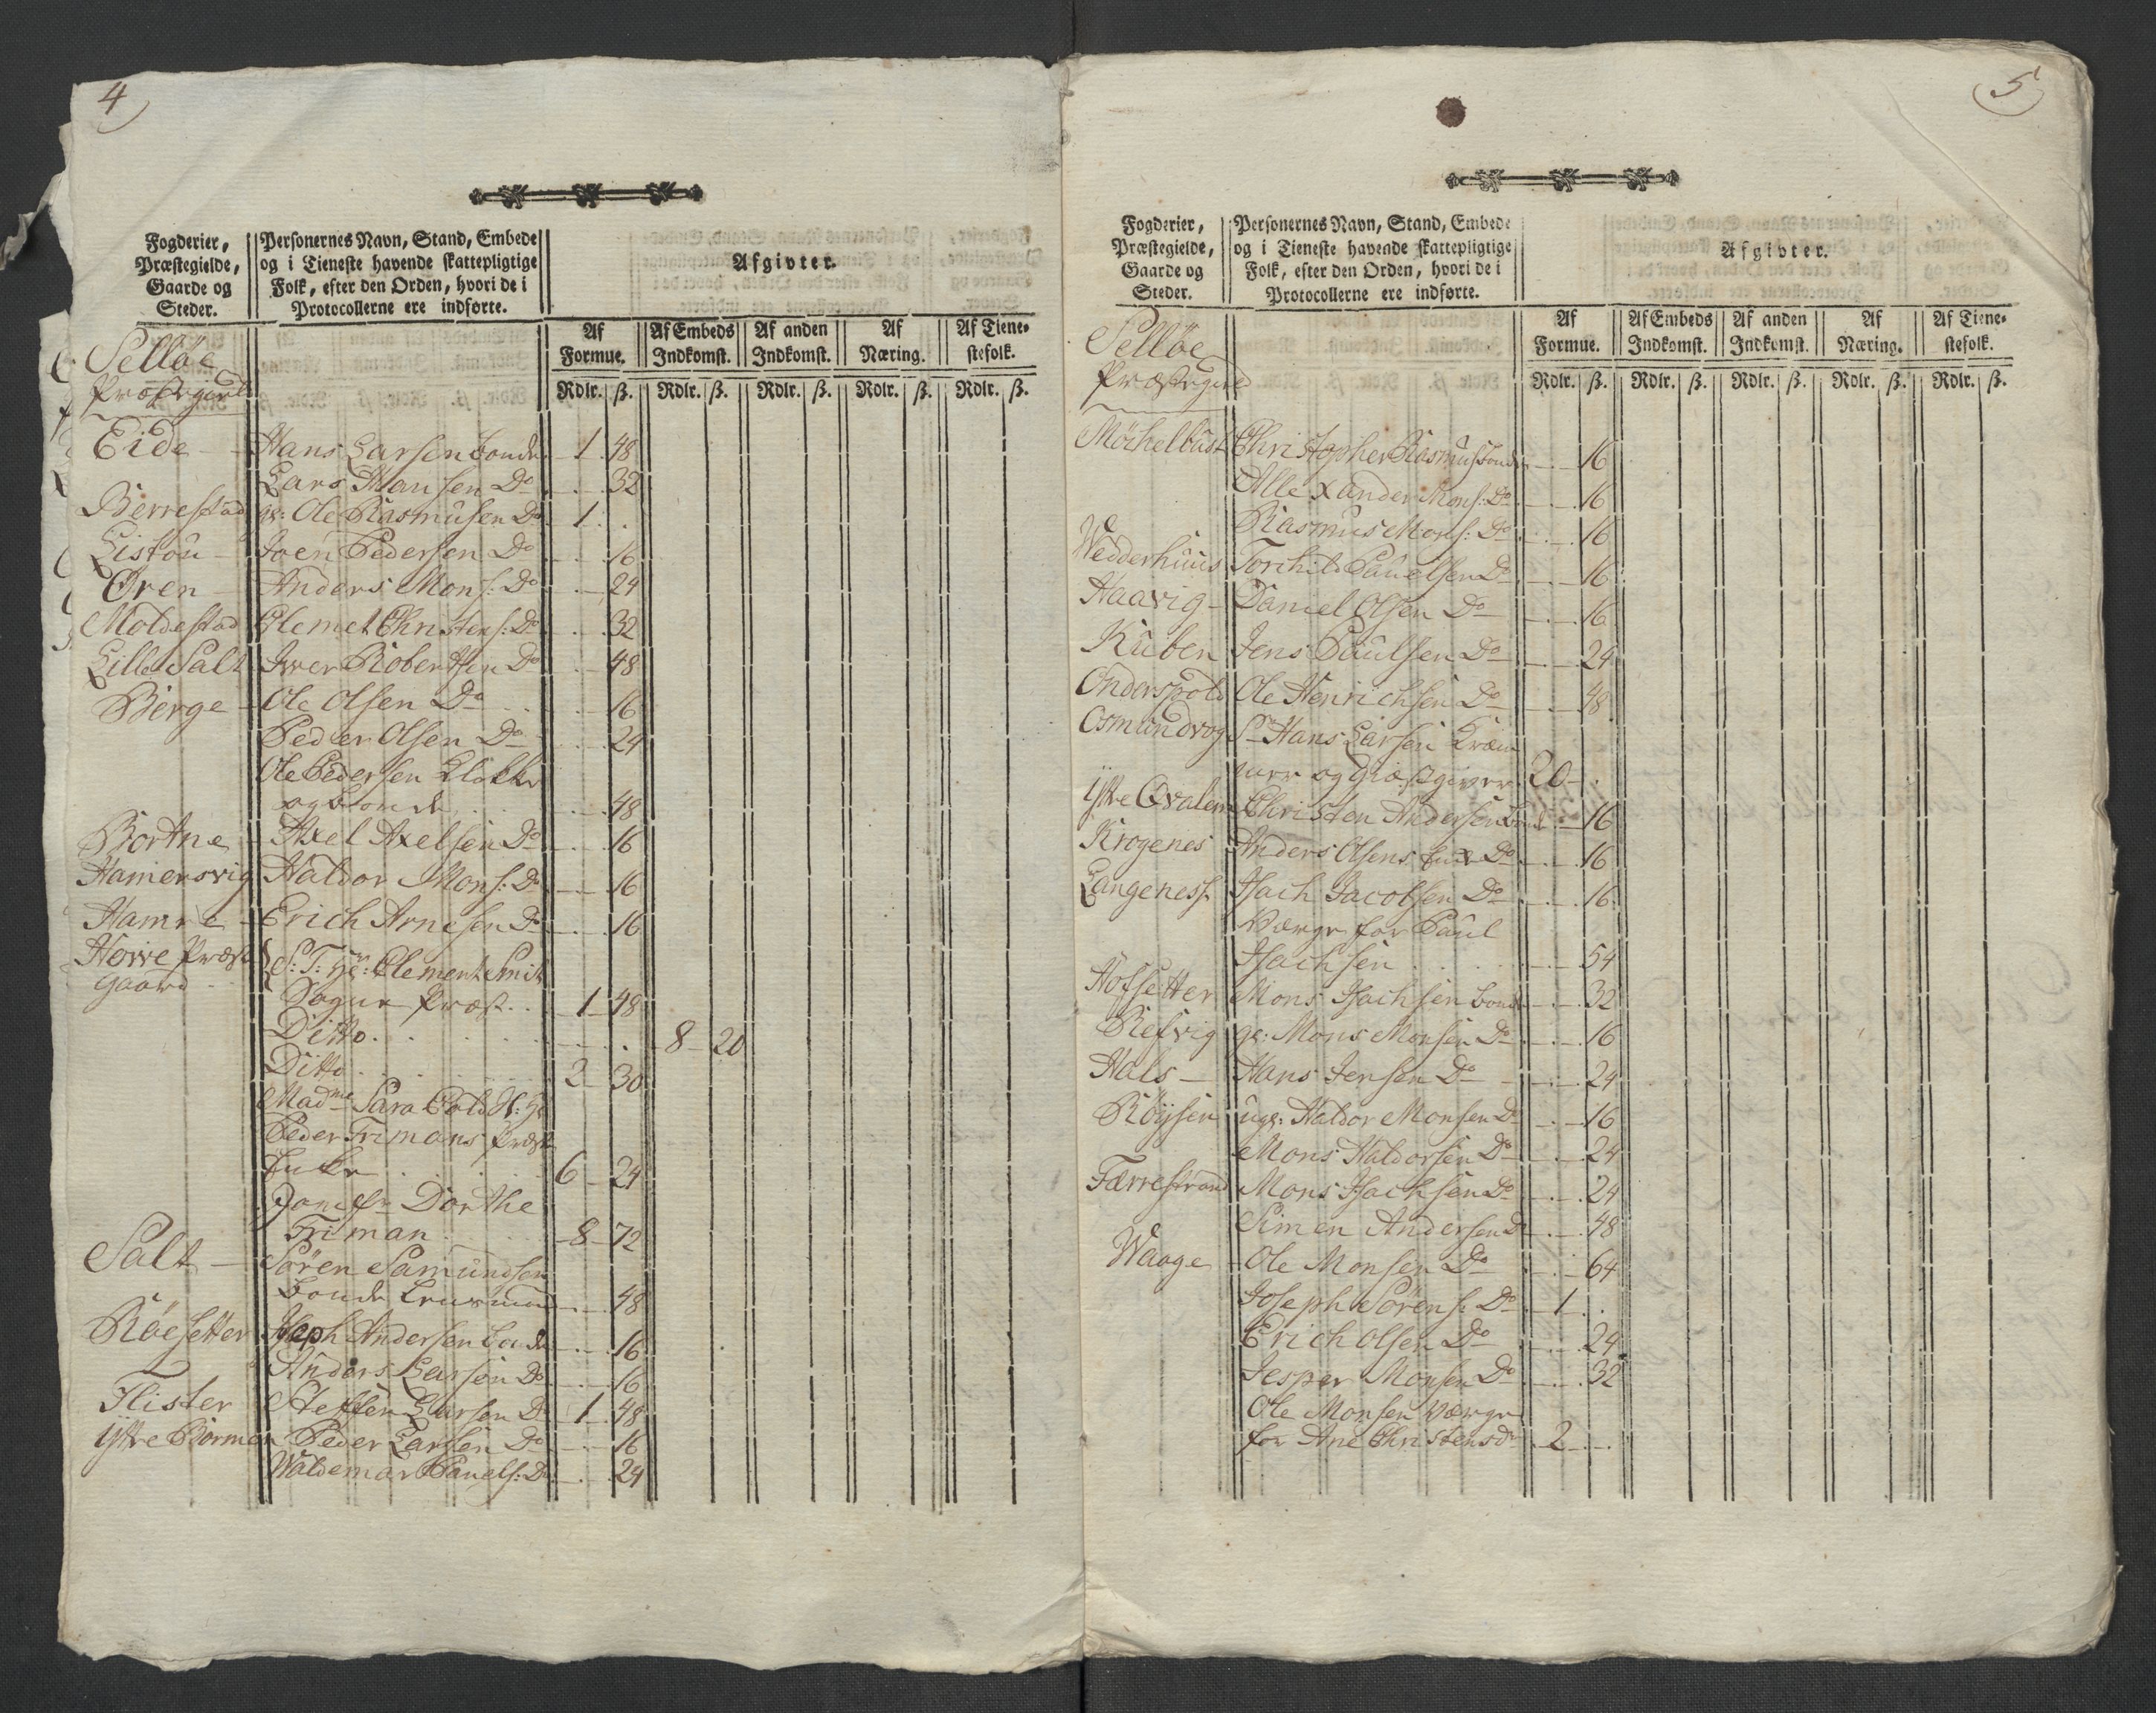 4
Fogderier,
Præstegielde,
Gaarde og
Steder.
Personernes Navn, Stand, Embede
og i Tieneste havende skattepligtige
Folk, efter den Orden, hvori de i
Protocollerne ere indførte.
Afgivter.
Af Formue. Af Embeds Indkomst. Af anden Indkomst. Af Næring. Af Tienestefolk.
Rdlr. ß. Rdlr. ß. Rdlr. ß. Rdlr. ß. Rdlr. ß.
Selløe
Præstegield
Eide Hans Larsen bonde 1 48
Lars Hansen Do 32
Berrestad gl: Ole Rasmusen Do 1
Listou Joen Pedersen Do 16
Øren Anders Mons: Do 24
Moldestad Clemet Christens: Do 32
Lille Salt Iver Robertsen Do 48
Berge Ole Olsen Do 16
Peder Olsen Do 24
Ole Pedersen Klokker
og bonde 48
Bortne Axel Axelsen Do 16
Hamersvig Haldor Mons: Do 16
Hamre Erich Arnesen Do 16
Horre Præste S: T: Hr: Clement Smit
gaard
Sogne Præst 1 48
Ditto 8 20
Ditto 2 30
Madme Sara Cold Sl: Hr
Peder Frimans Præste
Enke 6 24
Jomfr Dorthe
Friman 8 72
Salt Sören Samundsen
bonde Lensmand 48
Röesetter Jseph Andersen bonde 16
Anders Larsen Do 16
Flister Steffen Larsen Do 1 48
Ÿttre Bormen Peder Larsen Do 16
Waldemar Pauels: Do 24
5
Fogderier,
Præstegielde,
Gaarde og
Steder.
Personernes Navn, Stand, Embede
og i Tieneste havende skattepligtige
Folk, efter den Orden, hvori de i
Protocollerne ere indførte.
Afgivter.
Af Formue. Af Embeds Indkomst. Af anden Indkomst. Af Næring. Af Tienestefolk.
Rdlr. ß. Rdlr. ß. Rdlr. ß. Rdlr. ß. Rdlr. ß.
Selløe
Præstegield
Möchelbust Christopher Rasmus: bonde 16
Allexander Mons: Do 16
Rasmus Mons: Do 16
Wedderhuus Torchild Pauelsen Do 16
Haavig Daniel Olsen Do 16
Kuben Jens Paulsen Do 24
Onderspold Ole Henrichsen Do 48
Osmundvog Sr Hans Larsen Kræm
mer og Giæstgiver 20
Ÿttre Qvalem Christen Andersen bonde 16
Krogenes Anders Olsens Enke Do 16
Langeness Isach Jacobsen Do 16
Værge for Paul
Isachsen 54
Hofsetter Mons Isachsen bonde 32
Refvig gl: Mons Monsen Do 16
Hals Hans Jensen Do 24
Röÿsen ugl: Haldor Monsen Do 16
Mons Haldorsen Do 24
Færrestrand Mons Isachsen Do 24
Simen Andersen Do 48
Waage Ole Monsen Do 64
Joseph Sörens: Do 1
Erich Olsen Do 24
Jesper Monsen Do 32
Ole Monsen Værge
for Ane Christensdr 2